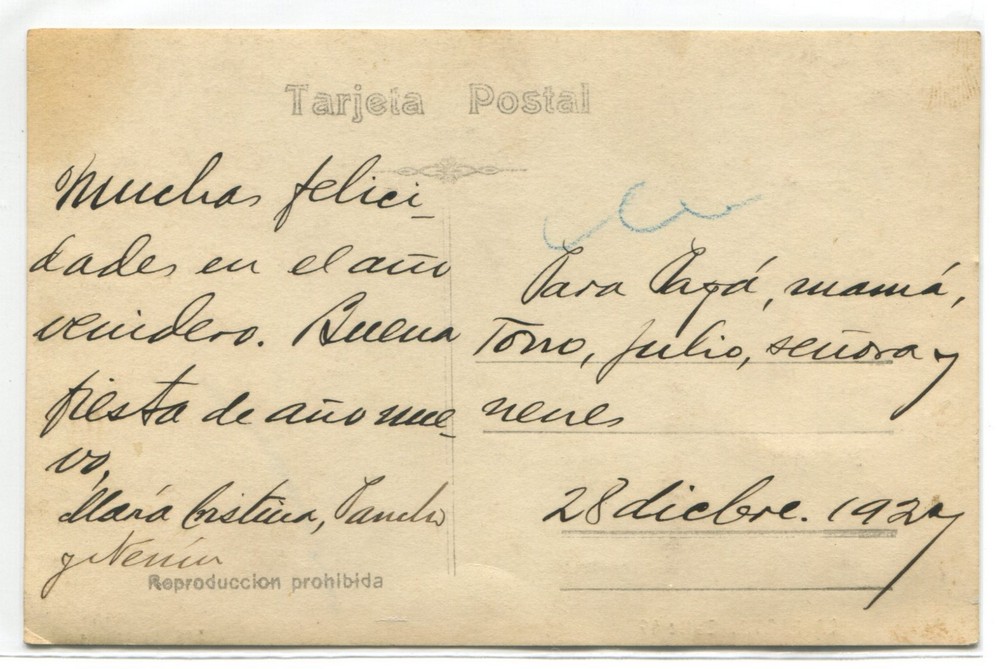 Tarjeta Postal
Muchas felici-
dades en el año
venidero. Buena
fiesta de año nue-
vo,
María Cristina, Pancho
y
Reproduccion prohibida
Para Papá, mamá,
Tono, Julio, señora y
nenes
28 dicbre. 192